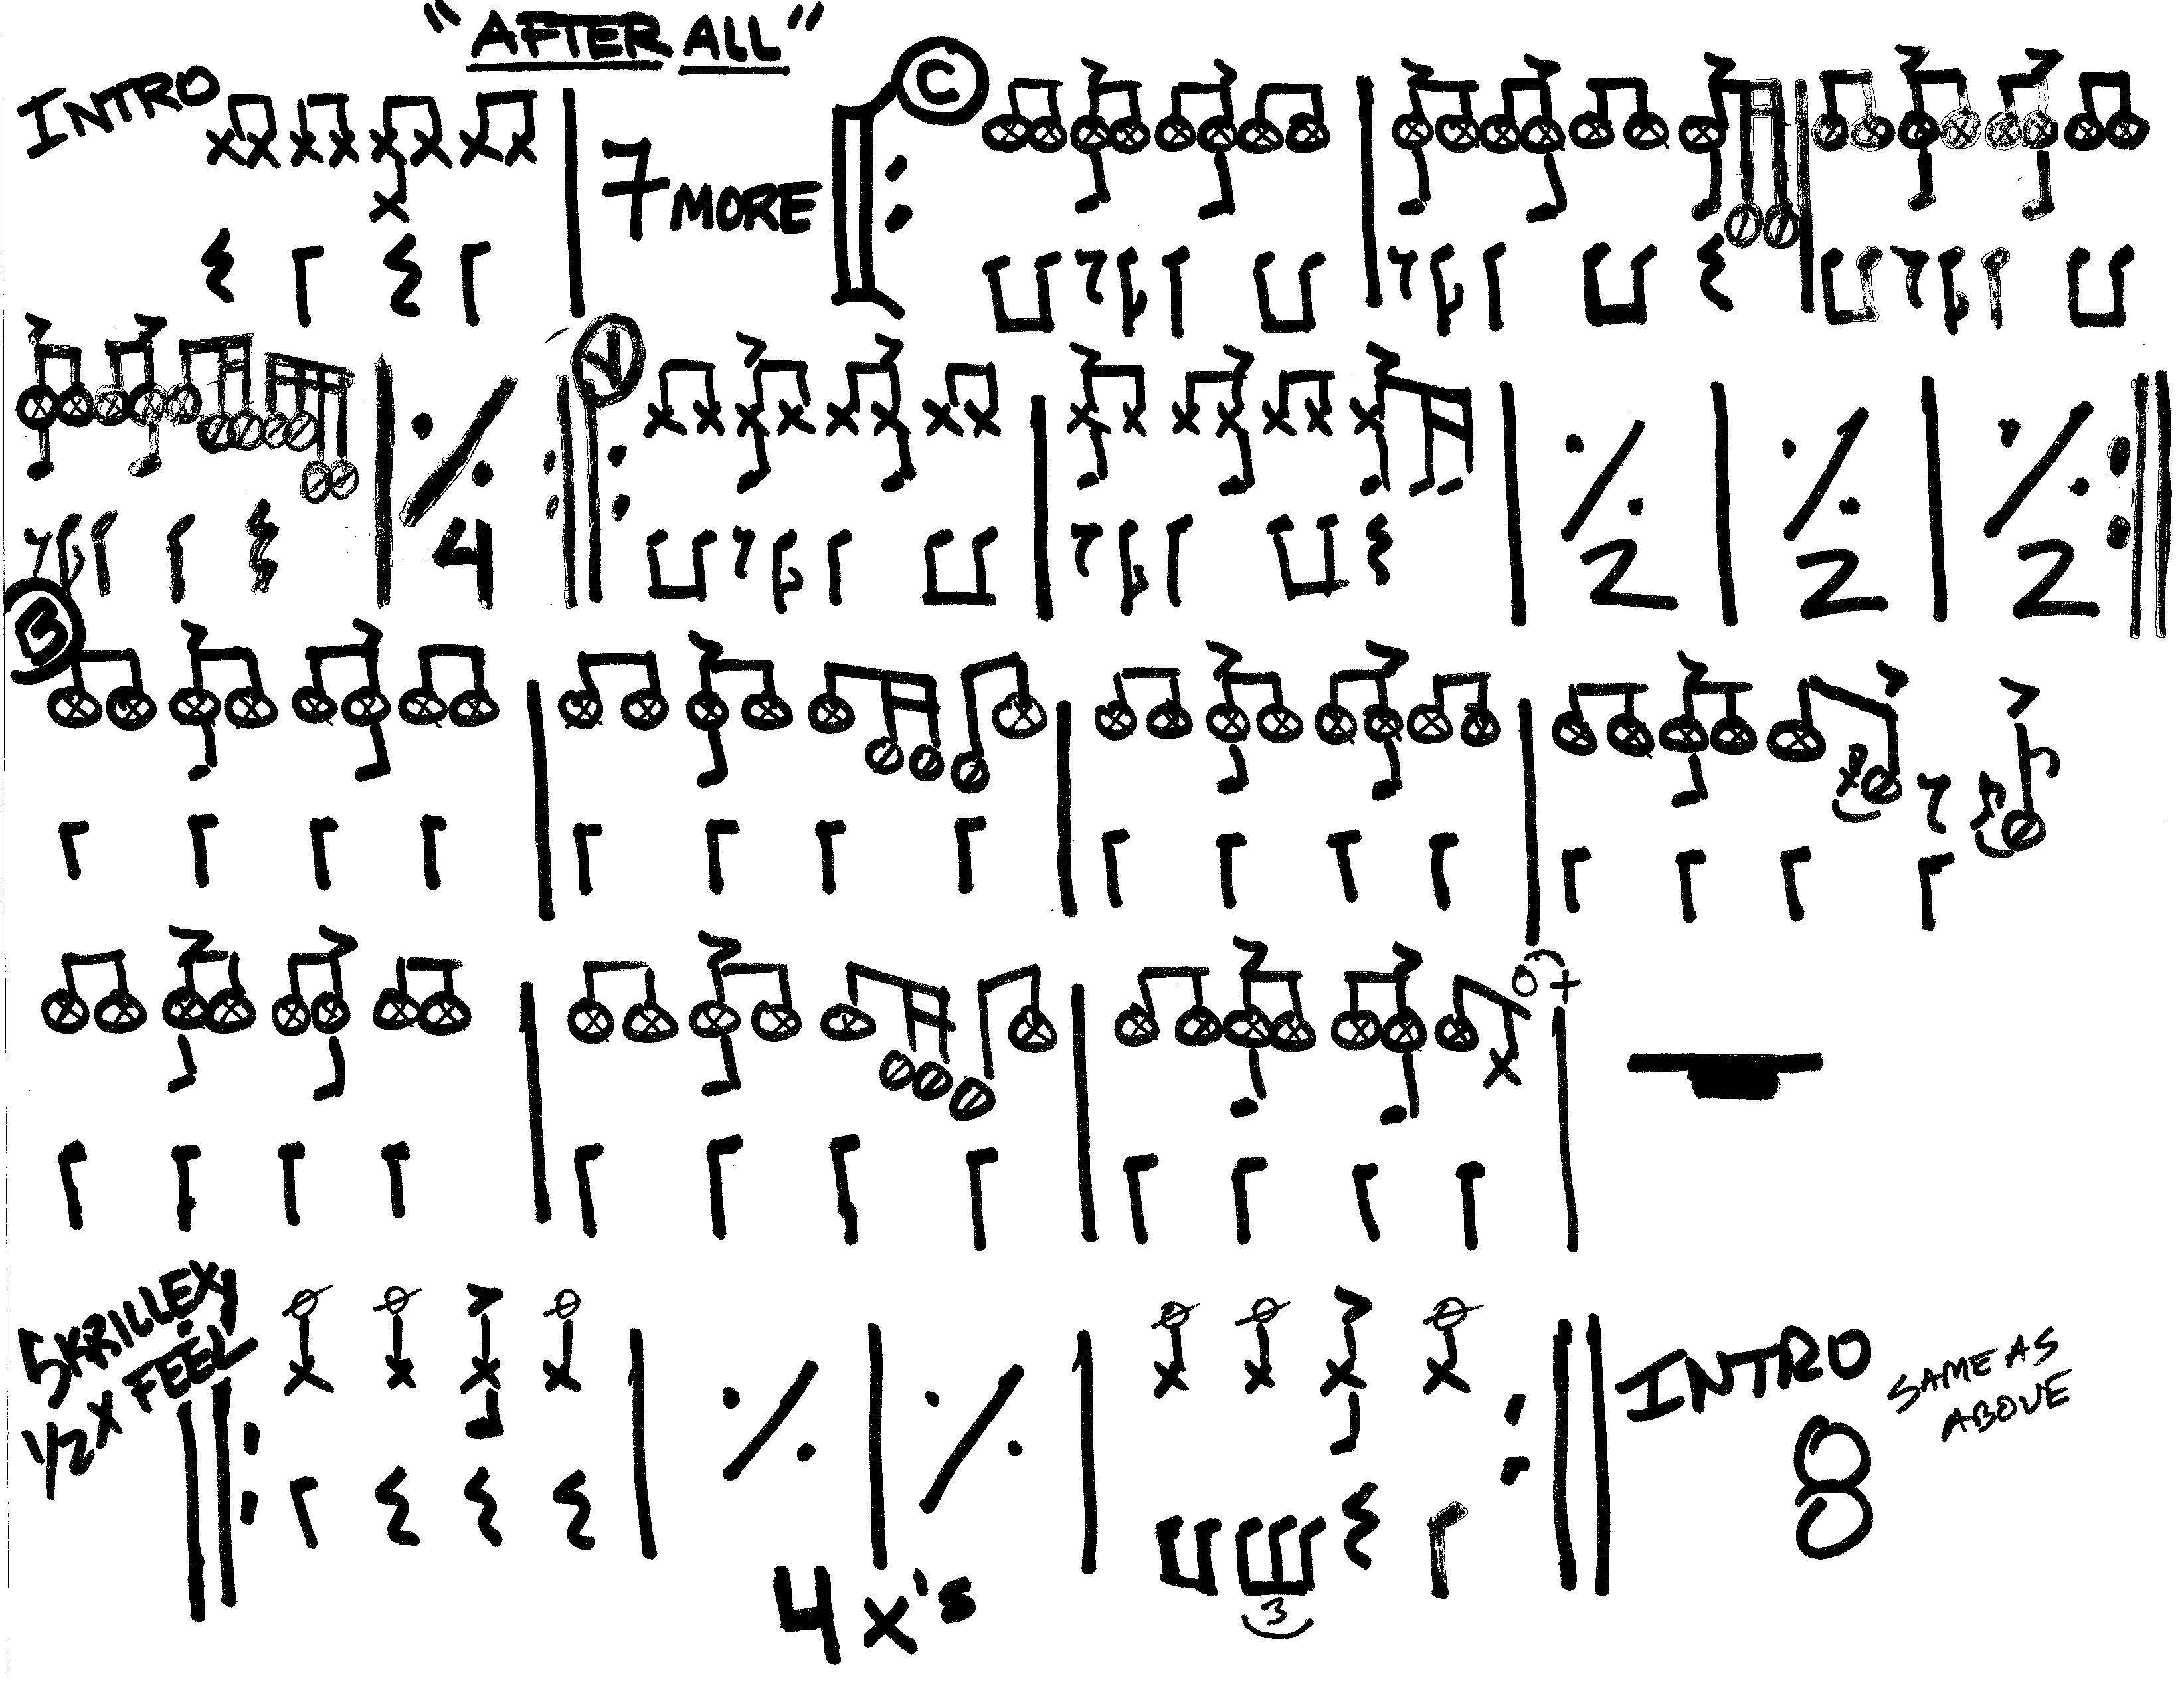 "AFTER ALL"
INTRO
7 MORE
C
4
V
2
2
2
B
3
SKRILLEX!
1/2 X FEEL
4 x's
3
INTRO
SAME AS
ABOVE
8